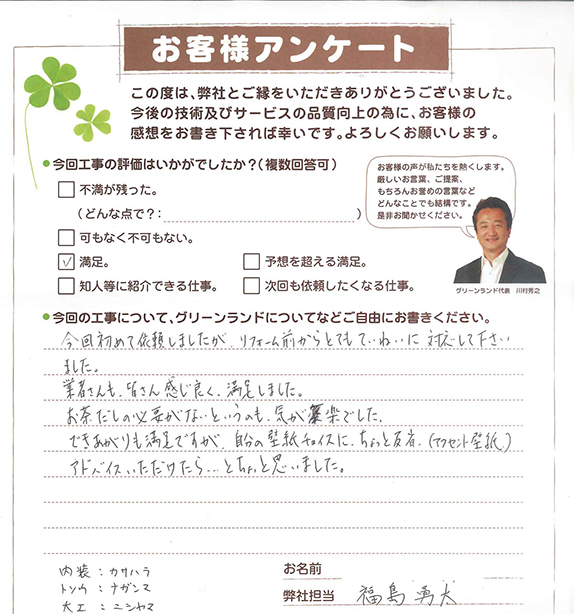 お客様アンケート
この度は、弊社とご縁をいただきありがとうございました。
今後の技術及びサービスの品質向上の為に、お客様の
感想をお書き下されば幸いです。よろしくお願いします。
今回工事の評価はいかがでしたか?(複数回答可)
不満が残った。
(どんな点で?: )
可もなく不可もない。
満足。
予想を超える満足。
知人等に紹介できる仕事。
次回も依頼したくなる仕事。
お客様の声が私たちを熱くします。
厳しいお言葉、ご提案、
もちろんお誉めの言葉など
どんなことでも結構です。
是非お聞かせください。
グリーンランド代表 川村秀之
今回の工事について、グリーンランドについてなどご自由にお書きください。
今回初めて依頼しましたが、リフォーム前からとてもていねいに対応して下さい
ました。
業者さんも、皆さん感じ良く、満足しました。
お茶だしの必要がないというのも、気が楽でした。
できあがりも満足ですが、自分の壁紙チョイスに、ちょっと反省。(アクセント壁紙)
アドバイスいただけたら...とちょっと思いました。
内装:カサハラ
トソウ:ナガシマ
大工:ニシヤマ
お名前
弊社担当 福島 勇太